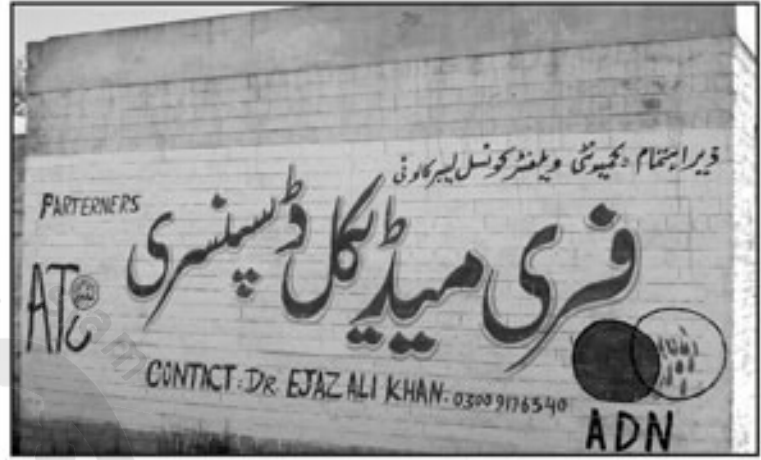 زیر اہتمام : کمیونٹی ویلفئر کونسل لیبر کالونی
PARTERNERS
فری میڈیکل ڈسپنسری
ATC
CONTACT: DR. EJAZ ALI KHAN. 03009176540
ADN